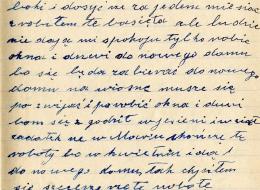 boki i dosyć na za jeden miesiąc
zrobiłem tę basięta ale ludzie
nie dają mi spokoju tylko robić
okna i drzwi do nowego domu
bo się będą zabierać do nowego
domu na wiosnę muszę się
po zwijać i porobić okna i drzwi
bom się z godził w jesieni i wziął
zadatek ne w Mowiu skończę te
roboty bo w kwietniu idą
do nowego domu, tak chyciłem
się szczerze robotę